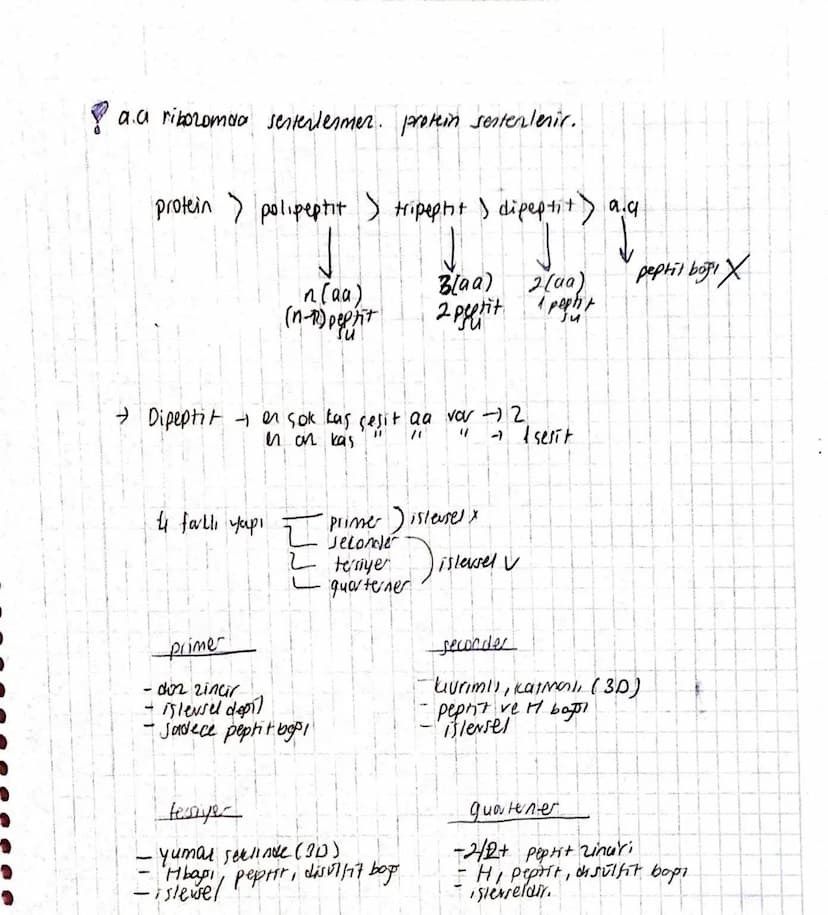 ! a.a ribozomda sentezlenmez. protein sentezlenir.
protein > polipeptit > tripeptit > dipeptit > a.a
n(aa) 3(aa) 2(aa) peptit bağı X
(n-1) peptit 2 peptit 1 peptit
su su su
→ Dipeptit → en çok kaç çeşit aa var → 2
en az kaç " " " → 1 çeşit
4 farklı yapı primer ) işlevsel x
seconder
tersiyer ) işlevsel v
quarterner
primer seconder
- düz zincir - kıvrımlı, katmanlı (3D)
- işlevsel değil - peptit ve H bağı
- sadece peptit bağı - işlevsel
tersiyer quartener
- yumak şeklinde (3D) - 2/2+ peptit zinciri
- H bağı, peptit, disülfit bağı - H, peptit, disülfit bağı
- işlevsel - işlevseldir.